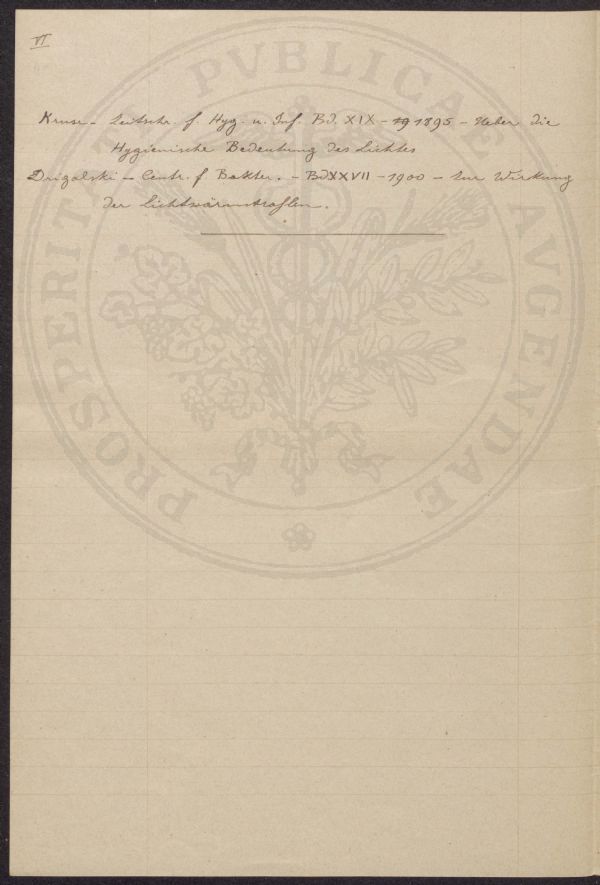 VI
Kruse - Zeitschr. f. Hyg. u. Inf. Bd. XIX - 1895 - Ueber die
Hygienische Bedeutung des Lichtes
Drigalski - Centr. f Bakter. - Bd XXVII - 1900 - Zur Wirkung
der Lichtwärmstrahlen.
PROSPERITATI PVBLICAE AVGENDAE